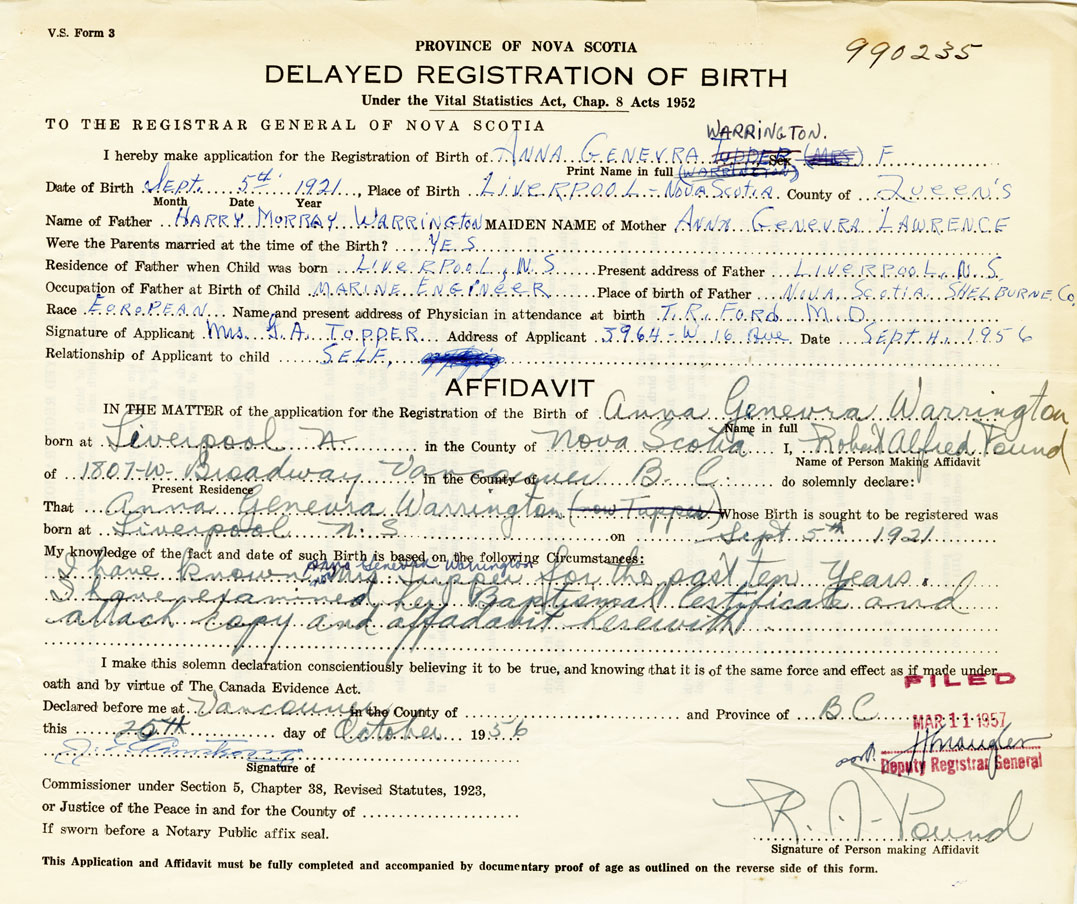 V.S. Form 3
PROVINCE OF NOVA SCOTIA
990235
DELAYED REGISTRATION OF BIRTH
Under the Vital Statistics Act, Chap. 8 Acts 1952
TO THE REGISTRAR GENERAL OF NOVA SCOTIA
WARRINGTON.
I hereby make application for the Registration of Birth of ANNA GENEVRA TUPPER (MRS) Sex F
Print Name in full (WARRINGTON)
Date of Birth SEPT. 5th 1921, Place of Birth LIVERPOOL - NOVA SCOTIA County of QUEEN'S
Month Date Year
Name of Father HARRY MORRAY WARRINGTON MAIDEN NAME of Mother ANNA GENEVRA LAWRENCE
Were the Parents married at the time of the Birth? YES
Residence of Father when Child was born LIVERPOOL, N.S Present address of Father LIVERPOOL, N.S
Occupation of Father at Birth of Child MARINE ENGINEER Place of birth of Father NOVA SCOTIA SHELBURNE Co,
Race EOROPEAN Name and present address of Physician in attendance at birth T.R. FORD M.D.
Signature of Applicant Mrs. G.A. TOPPER Address of Applicant 3964-W 16 Ave Date SEPT 4, 1956
Relationship of Applicant to child SELF,
AFFIDAVIT
IN THE MATTER of the application for the Registration of the Birth of Anna Genevra Warrington
Name in full
born at Liverpool N. in the County of Nova Scotia I, Robert Alfred Pound
Name of Person Making Affidavit
of 1807-W- Broadway Vancouver in the County of B.C. do solemnly declare:
Present Residence
That Anna Genevra Warrington (now Tupper) Whose Birth is sought to be registered was
born at Liverpool N.S on Sept 5th 1921
My knowledge of the fact and date of such Birth is based on the following Circumstances:
Anna Genevra Warrington
now
I have known Mrs Tupper for the past ten years.
I have examined her Baptismal Certificate and
attach copy and affadabit herewith
I make this solemn declaration conscientiously believing it to be true, and knowing that it is of the same force and effect as if made under
oath and by virtue of The Canada Evidence Act.
FILED
Declared before me at Vancouver in the County of and Province of B C
MAR 11 1957
this 25TH day of October 1956
Deputy Registrar General
Signature of
Commissioner under Section 5, Chapter 38, Revised Statutes, 1923,
or Justice of the Peace in and for the County of
If sworn before a Notary Public affix seal.
R. A. Pound
Signature of Person making Affidavit
This Application and Affidavit must be fully completed and accompanied by documentary proof of age as outlined on the reverse side of this form.